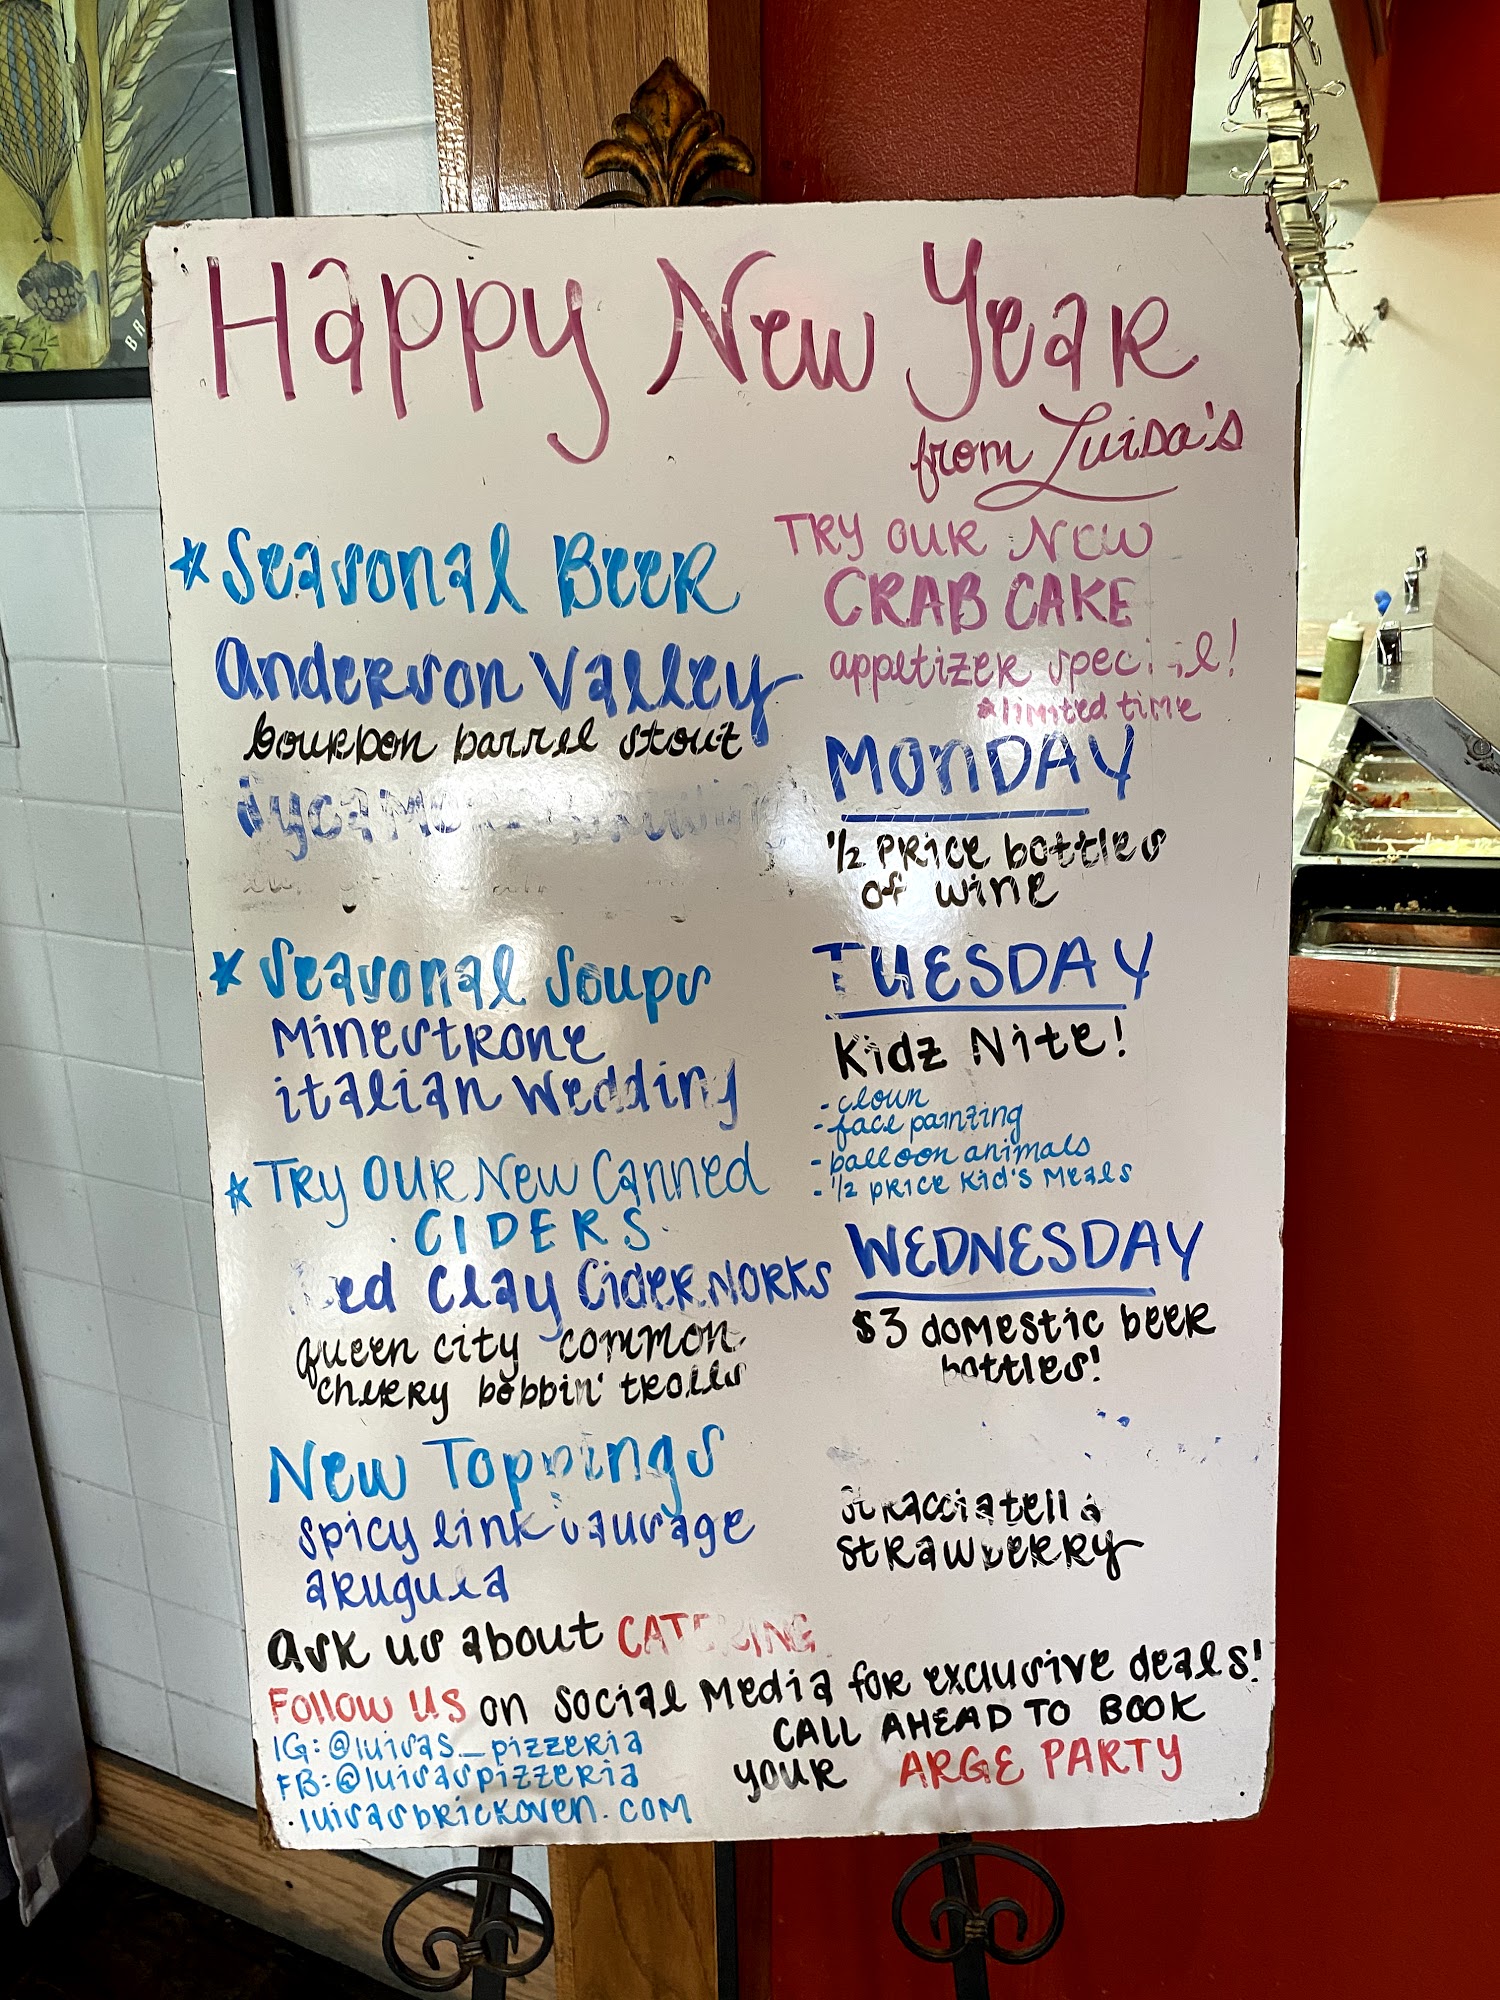 Happy New Year
from Luisa's
* Seasonal Beer
Anderson Valley
bourbon barrel stout
* Seasonal Soups
Minestrone
italian Wedding
* TRy OUR New Canned
CIDERS
Red Clay Ciderworks
queen city common
cherry bobbin' trolls
New Toppings
spicy link sausage
arugula
TRY OUR New
CRAB CAKE
appetizer special!
*limited time
MONDAY
1/2 PRice bottles
of wine
TUESDAY
Kidz Nite!
- clown
- face painting
- balloon animals
- 1/2 price Kid's Meals
WEDNESDAY
$3 domestic beer
bottles!
stracciatella
strawberry
ask us about CATERING
Follow us on social media for exclusive deals!
IG: @luisas_pizzeria
FB: @luisaspizzeria
. luisasbrickoven.com
CALL AHEAD TO BOOK
YOUR ARGE PARTY